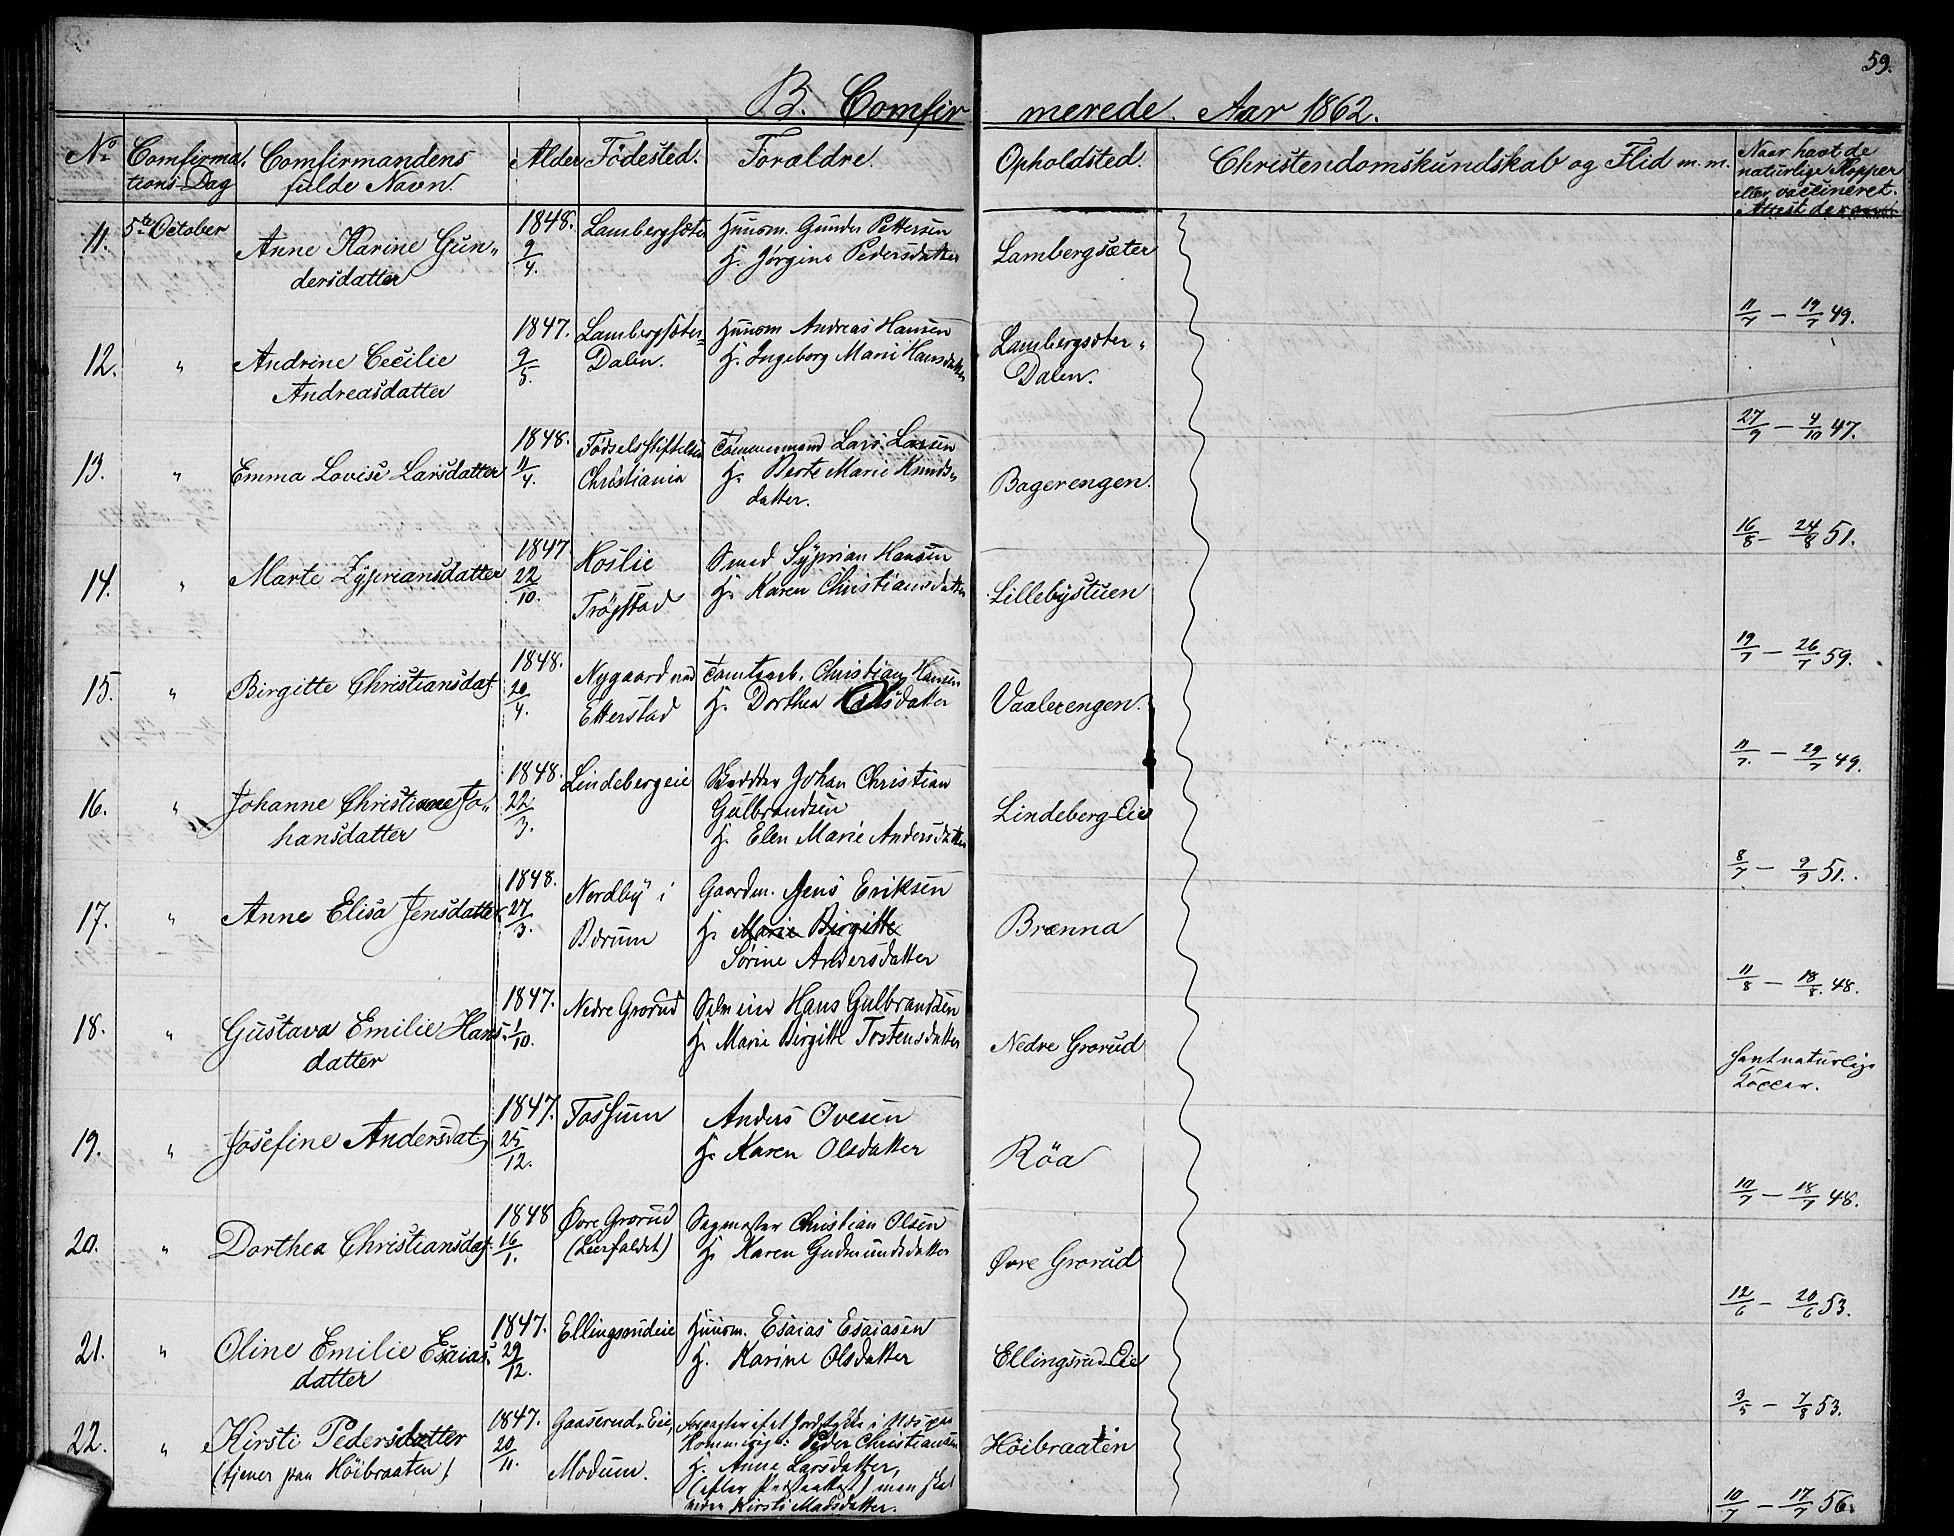 59.
B. Comfirmerede. Aar 1862.
No Comfirmations-Dag Comfirmandens fulde Navn. Alder Fødested. Forældre. Opholdsted. Christendomskundskab og Flid m. m. Naar havt de naturlige Kopper eller vaccineret. Attest derom
11. 5te October Anne Karine Gun„ 1848. Lambergsæter Huusm. Gunder Pettersen Lambergsæter
dersdatter 9/4. H. Jørgine Pedersdatter
11/7 – 19/7 49.
12. „ Andrine Cecilie 1847. Lambergsæter„ Huusm Andreas Hansen Lambergsæter„
Andreasdatter 9/5. Dalen. H. Ingeborg Marie Hansdatter Dalen.
27/9 – 4/10 47.
13. „ Emma Lovise Larsdatter 1848. Fødselsstiftelsen Tømmermand Lars Larsen Bagerengen.
11/4. Christiania H. Berte Marie Knuds„
datter.
16/8 – 24/8 51.
14. „ Marte Zypriansdatter 1847 Hoslie Smed Syprian Hansen Lillebystuen
22/10. Trøgstad H. Karen Christiansdatter
19/7 – 26/7 59.
15. „ Birgitte Christiansdat. 1848. Nygaard ved Tomtearb. Christian Hansen Vaalerengen.
20/4. Etterstad H. Dorthea Olsdatter
11/7. – 29/7 49.
16. „ Johanne Christiane Jo„ 1848. Lindebergeie Johan Christian Lindeberg-Eie
hansdatter 22/3. Gulbrandsen
H. Elen Marie Andersdatter
8/7 – 9/7 51.
17. „ Anne Elisa Jensdatter 1848. Nordby i Gaardm. Jens Eriksen Brænna
27/3. Bærum H. Marie Birgitte
Sørine Andersdatter
11/8 – 18/8. 48.
18. „ Gustava Emilie Hans„ 1847. Nedre Grorud Selveier Hans Gulbrandsen Nedre Grorud
datter 1/10. H. Marie Birgitte Tostensdatter
havt naturlige
Kopper.
19. „ Josefine Andersdat. 1847. Fossum Anders Ovesen Röa
25/12. H. Karen Olsdatter
10/7 – 18/7 48.
20. „ Dorthea Christiansdat. 1848 Øvre Grorud Sagmester Christian Olsen Øvre Grorud
16/1. (Leerfaldet) H. Karen Gudmundsdatter
12/6 – 20/6 53.
21. „ Oline Emilie Esaias„ 1847. Ellingsrudeie Huusm. Esaias Esaiasen Ellingsrud-Eie
datter 29/12. H. Karine Olsdatter
3/5 – 7/8 53.
22. „ Kirsti Pedersdatter 1847. Gaaserud-Eie, Forpagter af et Jordstykke i Høibraaten
(tjener paa Høibraaten) 20/11. Modum. Peder Christiansen
H. Anne Larsdatter,
(efter Præsteattest) men skal
være Kirsti Madsdatter.
10/7 – 17/7 56.